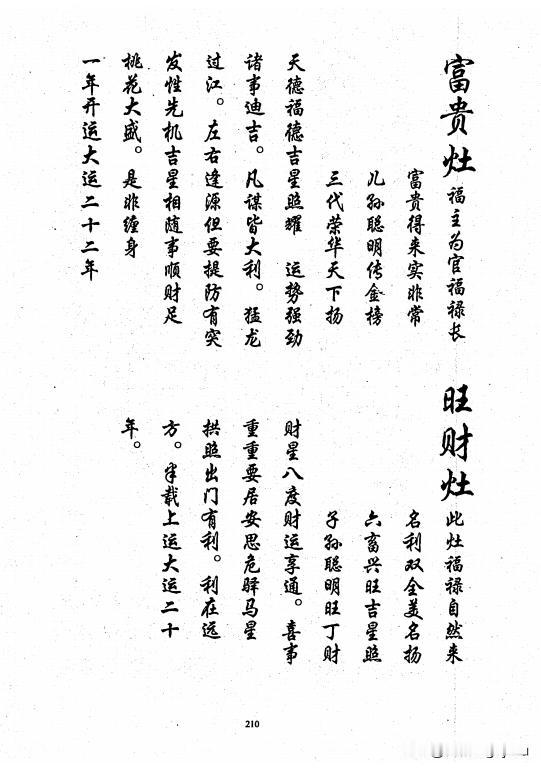 富貴灶 福主为官福禄长
富貴得来实非常
儿孙聪明传金榜
三代荣华天下扬
天德福德吉星照耀 运势强劲
诸事迪吉。凡谋皆大利。猛龙
过江。左右逢源但要提防有突
发性先机吉星相随事顺财足
桃花大盛。是非缠身
一年开运大运二十二年
旺财灶 此灶福禄自然来
名利双全美名扬
六畜兴旺吉星照
子孙聪明旺丁财
财星八度财运享通。喜事
重重要居安思危驿马星
拱照出门有利。利在远
方。半载上运大运二十
年。
210